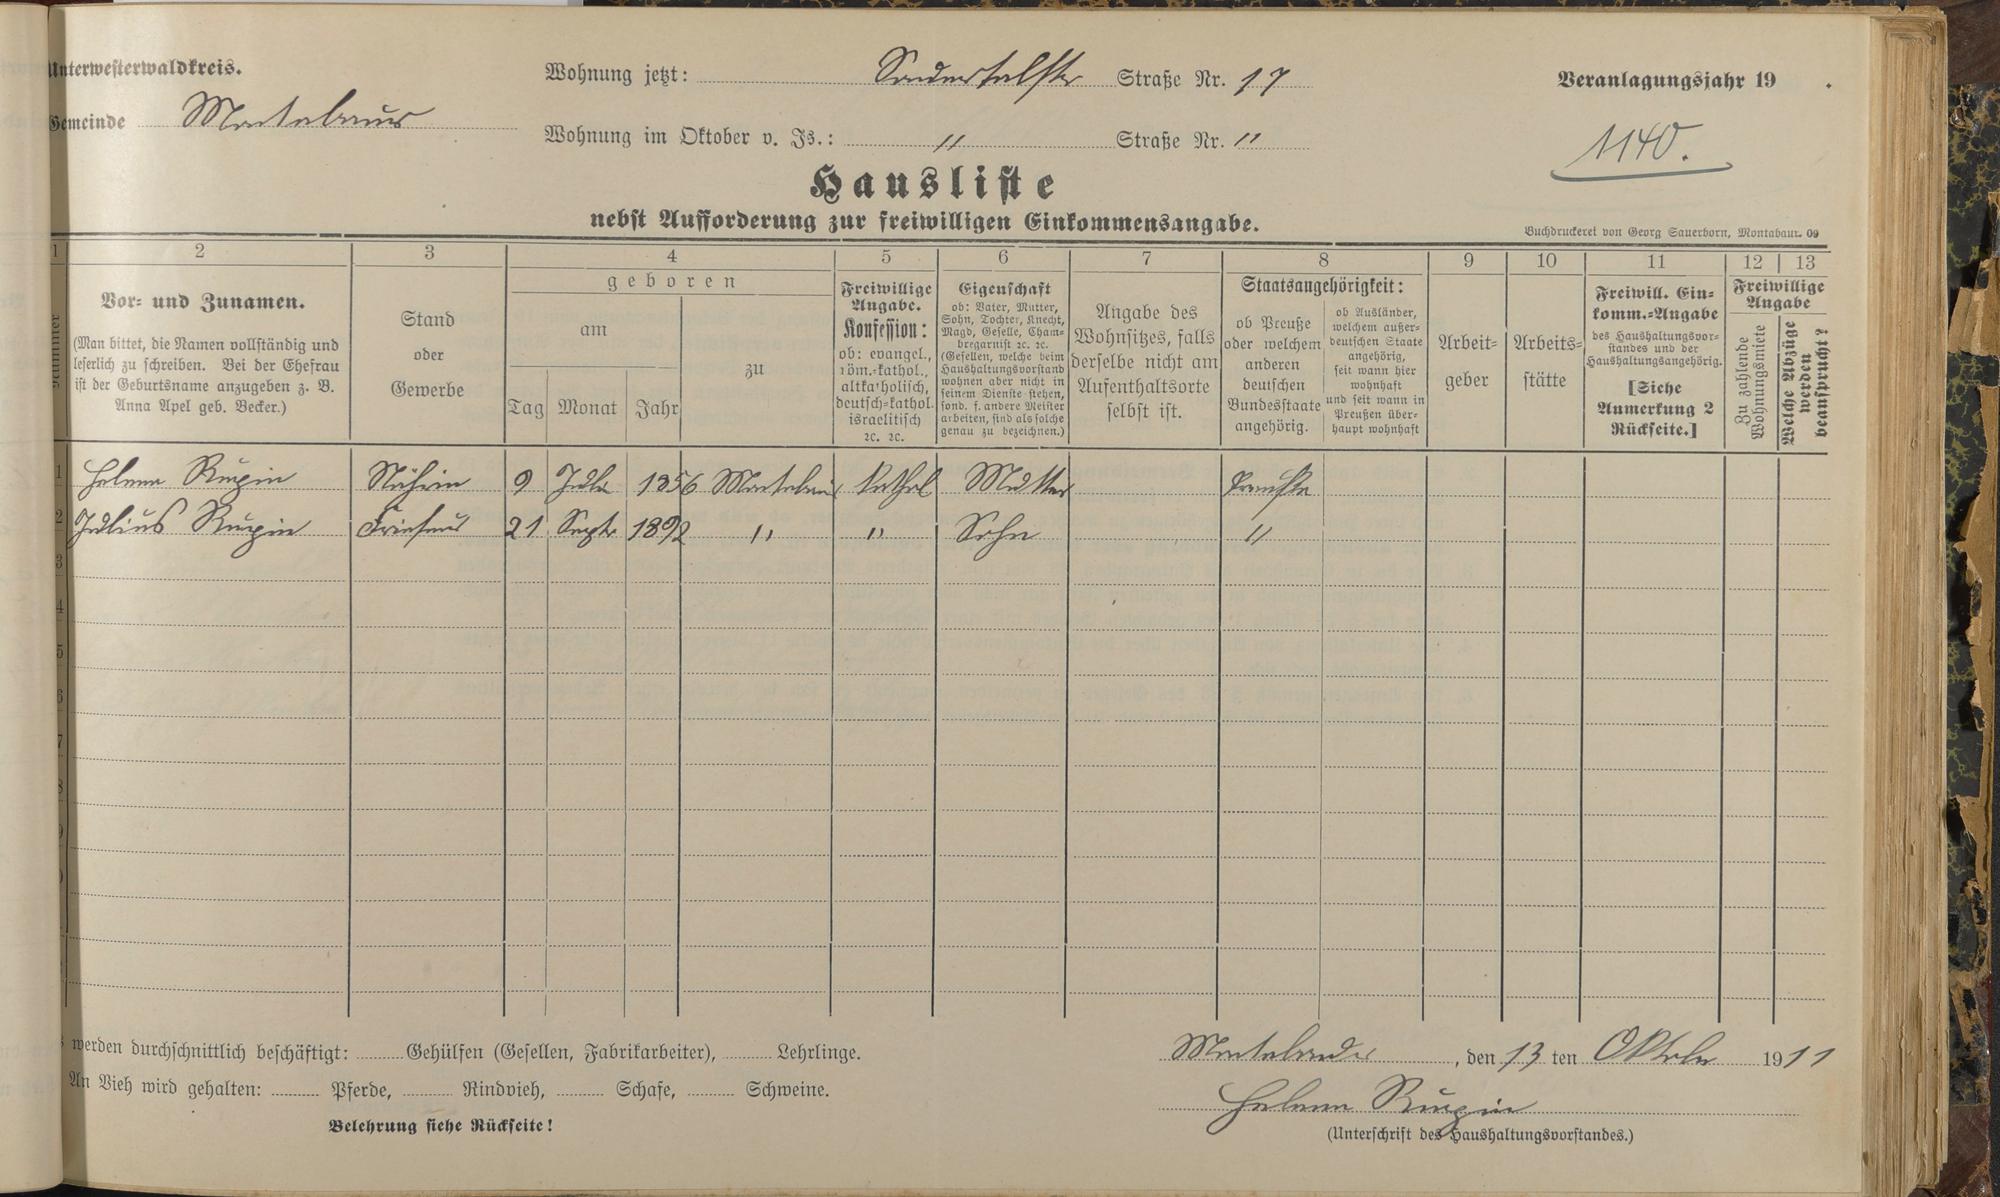 Unterwesterwaldkreis.
Gemeinde Montabaur
Wohnung jetzt: Sauertalstr Straße Nr. 17
Wohnung im Oktober v. Js.: " Straße Nr. "
Veranlagungsjahr 19 .
1140.
Hausliste
nebst Aufforderung zur freiwilligen Einkommensangabe.
Buchdruckerei von Georg Sauerborn, Montabaur. 09
1 2 3 4 5 6 7 8 9 10 11 12 13
Nummer
Vor- und Zunamen.
(Man bittet, die Namen vollständig und
leserlich zu schreiben. Bei der Ehefrau
ist der Geburtsname anzugeben z. B.
Anna Apel geb. Becker.)
Stand
oder
Gewerbe
geboren
am
zu
Tag Monat Jahr
Freiwillige
Angabe.
Konfession:
ob: evangel.,
röm.-kathol.,
altkatholisch,
deutsch-kathol.
israelitisch
ec. ec.
Eigenschaft
ob: Vater, Mutter,
Sohn, Tochter, Knecht,
Magd, Geselle, Cham-
bregarnist ec. ec.
(Gesellen, welche beim
Haushaltungsvorstand
wohnen aber nicht in
seinem Dienste stehen,
sond. f. andere Meister
arbeiten, sind als solche
genau zu bezeichnen.)
Angabe des
Wohnsitzes, falls
derselbe nicht am
Aufenthaltsorte
selbst ist.
Staatsangehörigkeit:
ob Preuße
oder welchem
anderen
deutschen
Bundesstaate
angehörig.
ob Ausländer,
welchem außer-
deutschen Staate
angehörig,
seit wann hier
wohnhaft
und seit wann in
Preußen über-
haupt wohnhaft
Arbeit-
geber
Arbeits-
stätte
Freiwill. Ein-
komm.-Angabe
des Haushaltungsvor-
standes und der
Haushaltungsangehörig.
[Siehe
Anmerkung 2
Rückseite.]
Freiwillige
Angabe
Zu zahlende
Wohnungsmiete
Welche Abzüge
werden
beansprucht?
1 Helene Rupin Näherin 9 Juli 1856 Montabaur kathol Mutter Preuße
2 Julius Rupin Friseur 21 Septr 1892 " " Sohn "
3
4
5
6
7
8
9
0
werden durchschnittlich beschäftigt: Gehülfen (Gesellen, Fabrikarbeiter), Lehrlinge.
An Vieh wird gehalten: Pferde, Rindvieh, Schafe, Schweine.
Belehrung siehe Rückseite!
Montabaur, den 13 ten Oktober 1911
Helene Rupin
(Unterschrift des Haushaltungsvorstandes.)